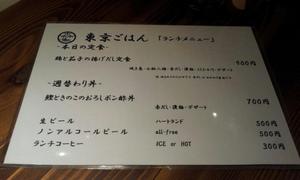 東京ごはん 「ランチメニュー」
-本日の定食-
鶏と茄子の揚げだし定食 900円
-週替わり丼-
鰹ときのこのおろしポン酢丼 700円
赤だし・漬物・デザート
生ビール ハートランド 500円
ノンアルコールビール all-free 500円
ランチコーヒー ICE or HOT 300円